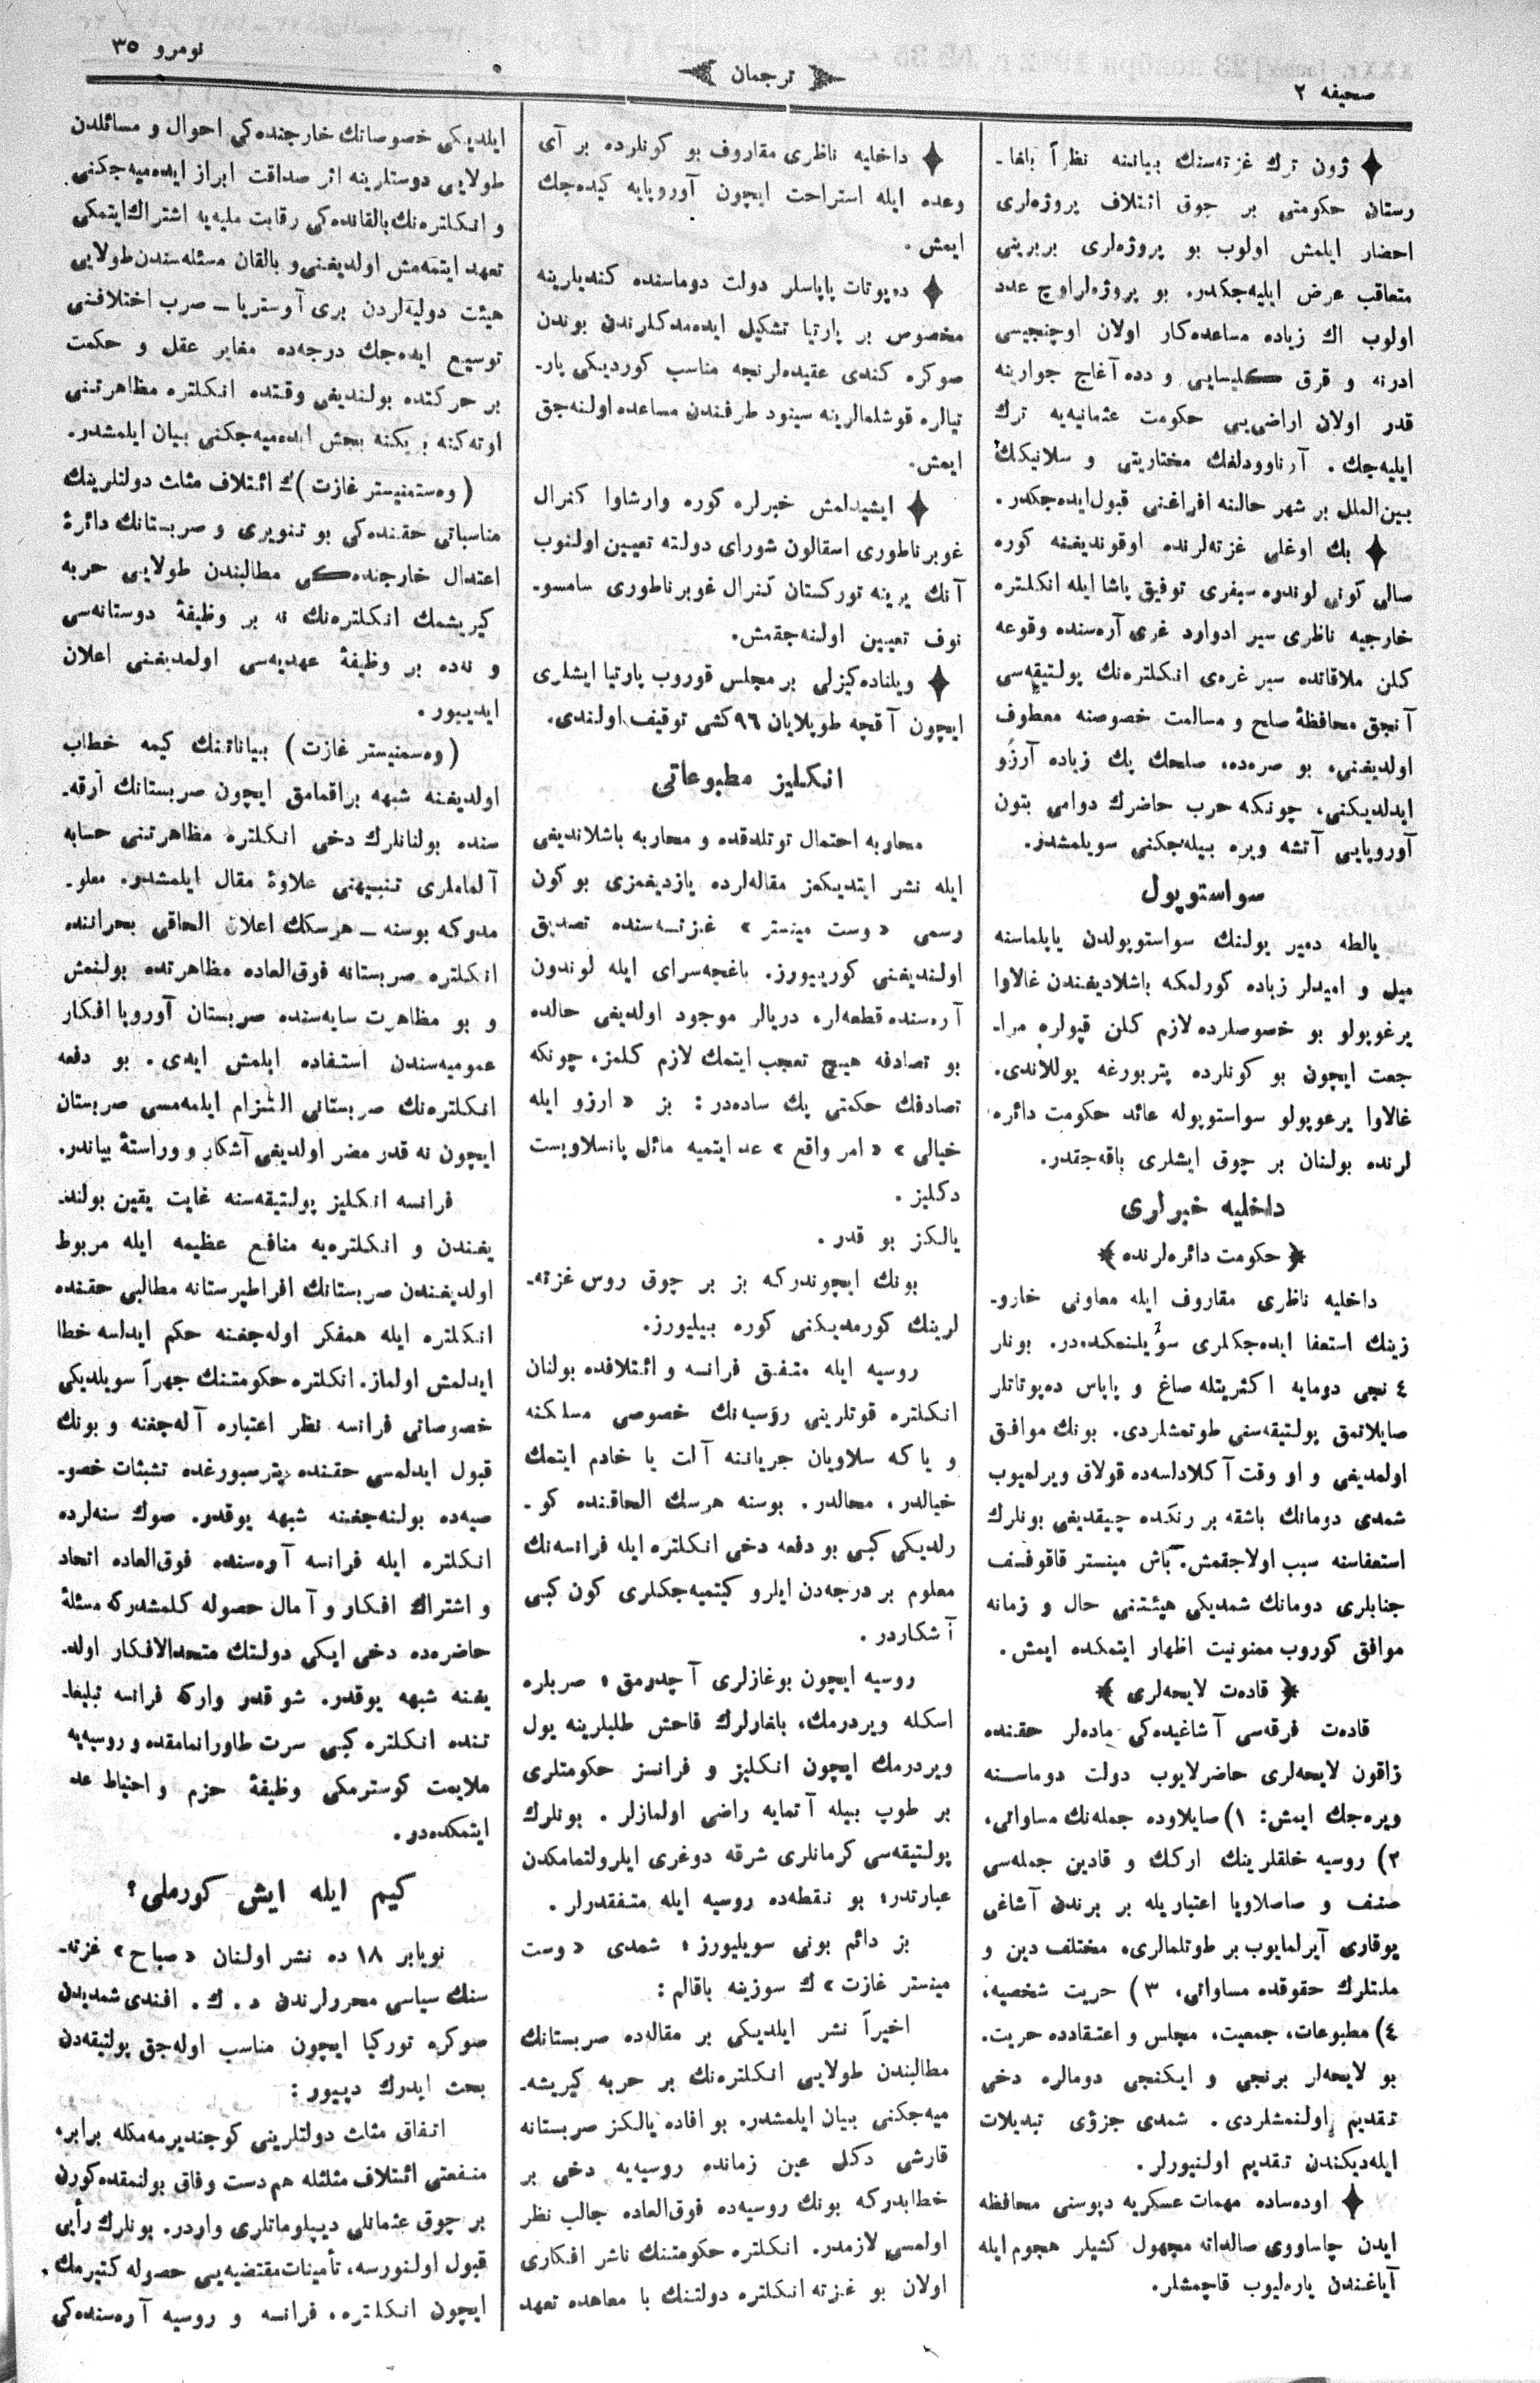 صحیفه ٢
ترجمان
نومرو ٣٥
ژون ترك غزته‌سنك بیاننه نظراً بلغا-
رستان حكومتی بر چوق ائتلاف پروژه‌لری
احضار ایلمش اولوب بو پروژه‌لری بربرینی
متعاقب عرض ایلیه‌جكدر. بو پروژه‌لر اوچ عدد
اولوب اك زیاده مساعده‌كار اولان اوچنجیسی
ادرنه و قرق كلیسایی و دده آغاج جوارینه
قدر اولان اراضی‌یی حكومت عثمانیه‌یه ترك
ایلیه‌جك. آرناوودلغك مختاریتی و سلانیكك
بین‌الملل بر شهر حالنه افراغنی قبول ایده‌جكدر.
بك اوغلی غزته‌لرنده اوقوندیغنه كوره
صالی كونی لوندره سیفری توفیق پاشا ایله انكلتره
خارجیه ناظری سیر ادوارد غری آره‌سنده وقوعه
كلن ملاقاتده سیر غره‌ی انكلتره‌نك پولتیقه‌سی
آنجق محافظهٔ صلح و مسالمت خصوصنه معطوف
اولدیغنی، بو صره‌ده، صلحك پك زیاده آرزو
ایدلدیكنی، چونكه حرب حاضرك دوامی بتون
آوروپایی آتشه ویره بیله‌جكنی سویلمشدر.
سواستوپول
یالطه دمیر یولنك سواستوپولدن یاپلماسنه
میل و امیدلر زیاده كورلمكه باشلادیغندن غالاوا
پرغوپولو بو خصوصلرده لازم كلن قپولره مرا-
جعت ایچون بو كونلرده پتربورغه یوللاندی.
غالاوا پرغوپولو سواستوپوله عائد حكومت دائره
لرنده بولنان بر چوق ایشلری باقه‌جقدر.
داخلیه خبرلری
﴿ حكومت دائره‌لرنده ﴾
داخلیه ناظری مقاروف ایله معاونی خارو-
زینك استعفا ایده‌جكلری سویلنمكده‌در. بونلر
٤ نجی دومایه اكثریتله صاغ و پاپاس ده‌پوتاتلر
صایلاتمق پولتیقه‌سنی طوتمشلردی. بونك موافق
اولمدیغی و او وقت آكلاداسه‌ده قولاق ویرلمیوب
شمدی دومانك باشقه بر رنكده چیقدیغی بونلرك
استعفاسنه سبب اولاجقمش. باش مینستر قاقوفسف
جنابلری دومانك شمدیكی هیئتنی حال و زمانه
موافق كوروب ممنونیت اظهار ایتمكده ایمش.
﴿ قاده‌ت لایحه‌لری ﴾
قاده‌ت فرقه‌سی آشاغیده‌كی ماده‌لر حقنده
زاقون لایحه‌لری حاضرلایوب دولت دوماسنه
ویره‌جك ایمش: ١) صایلاوده جمله‌نك مساواتی،
٢) روسیه خلقلرینك ارلك و قادین جمله‌سی
صنف و صاصلاویا اعتباریله بر برندن آشاغی
یوقاری آیرلمایوب بر طوتلمالری، مختلف دین و
ملتلرك حقوقده مساواتی، ٣) حریت شخصیه،
٤) مطبوعات، جمعیت، مجلس و اعتقادده حریت.
بو لایحه‌لر برنجی و ایكنجی دومالره دخی
تقدیم اولنمشلردی. شمدی جزؤی تبدیلات
ایله‌دیكندن تقدیم اولنیورلر.
اوده‌ساده مهمات عسكریه دپوسنی محافظه
ایدن چاساووی صالداته مجهول كشیلر هجوم ایله
آیاغندن یاره‌لیوب قاچمشلر.
داخلیه ناظری مقاروف بو كونلرده بر آی
وعده ایله استراحت ایچون آوروپایه كیده‌جك
ایمش.
ده‌پوتات پاپاسلر دولت دوماسنده كندیلرینه
مخصوص بر پارتیا تشكیل ایده‌مدكلرندن بوندن
صوكره كندی عقیده‌لرنجه مناسب كوردیكی پار-
تیالره قوشلمالرینه سینود طرفندن مساعده اولنه‌جق
ایمش.
ایشیدلمش خبرلره كوره وارشاوا كنرال
غوبرناطوری اسقالون شورای دولته تعیین اولنوب
آنك یرینه توركستان كنرال غوبرناطوری سامسو-
نوف تعیین اولنه‌جقمش.
ویلناده كیزلی بر مجلس قوروب پارتیا ایشلری
ایچون آقچه طوپلایان ٩٦ كشی توقیف اولندی.
انكلیز مطبوعاتی
محاربه احتمال توتلدقده و محاربه باشلاندیغی
ایله نشر ایتدیكمز مقاله‌لرده یازدیغمزی بو كون
رسمی «وست مینستر» غزته‌سنده تصدیق
اولندیغنی كورییورز. باغچه‌سرای ایله لوندون
آره‌سنده قطعه‌لر، دریالر موجود اولدیغی حالده
بو تصادفه هیچ تعجب ایتمك لازم كلمز، چونكه
تصادفك حكمتی پك ساده‌در: بز «ارزو ایله
خیالی» «امر واقع» عد ایتمیه مائل پانسلاویست
دكلیز.
یالكز بو قدر.
بونك ایچوندركه بز بر چوق روس غزته-
لرینك كورمدیكنی كوره بیلیورز.
روسیه ایله متفق فرانسه و ائتلافده بولنان
انكلتره قوتلرینی روسیه‌نك خصوصی مسلكنه
و یا كه سلاویان جریاننه آلت یا خادم ایتمك
خیالدر، محالدر. بوسنه هرسك الحاقنده كو-
رلدیكی كبی بو دفعه دخی انكلتره ایله فرانسه‌نك
معلوم بر درجه‌دن ایلرو كیتمیه‌جكلری كون كبی
آشكاردر.
روسیه ایچون بوغازلری آچدرمق، صربلره
اسكله ویردرمك، بلغارلرك فاحش طلبلرینه یول
ویردرمك ایچون انكلیز و فرانسز حكومتلری
بر طوپ بیله آتمایه راضی اولمازلر. بونلرك
پولتیقه‌سی كرمانلری شرقه دوغری ایلرولتمامكدن
عبارتدر، بو نقطه‌ده روسیه ایله متفقدرلر.
بز دائم بونی سویلیورز، شمدی «وست
مینستر غازت»ك سوزینه باقالم:
اخیراً نشر ایلدیكی بر مقاله‌ده صربستانك
مطالبندن طولایی انكلتره‌نك بر حربه كیریشه-
میه‌جكنی بیان ایلمشدر. بو افاده یالكز صربستانه
قارشی دكل عین زمانده روسیه‌یه دخی بر
خطابدركه بونك روسیه‌ده فوق‌العاده جالب نظر
اولمسی لازمدر. انكلتره حكومتنك ناشر افكاری
اولان بو غزته انكلتره دولتنك با معاهده تعهد
ایلدیكی خصوصاتك خارجنده‌كی احوال و مسائلدن
طولایی دوستلرینه اثر صداقت ابراز ایده‌میه‌جكنی
و انكلتره‌نك بالقانده‌كی رقابت ملیه‌یه اشتراك ایتمكی
تعهد ایتمه‌مش اولدیغنی و بالقان مسئله‌سندن طولایی
هیئت دولیه‌لردن بری آوستریا — صرب اختلافنی
توسیع ایده‌جك درجه‌ده مغایر عقل و حكمت
بر حركتده بولندیغی وقتده انكلتره مظاهرتنی
اوته‌كنه بریكنه بخش ایده‌میه‌جكنی بیان ایلمشدر.
(وه‌ستمنیستر غازت)ك ائتلاف مثلث دولتلرینك
مناسباتی حقنده‌كی بو تنویری و صربستانك دائرهٔ
اعتدال خارجنده‌كی مطالبندن طولایی حربه
كیریشمك انكلتره‌نك نه بر وظیفهٔ دوستانه‌سی
و نه‌ده بر وظیفهٔ عهدیه‌سی اولمدیغنی اعلان
ایدییور.
(وه‌سمنیستر غازت) بیاناتنك كیمه خطاب
اولدیغنه شبهه براقمامق ایچون صربستانك آرقه-
سنده بولنانلرك دخی انكلتره مظاهرتنی حسابه
آلماملری تنبیهنی علاوهٔ مقال ایلمشدر. معلو-
مدركه بوسنه — هرسكك اعلان الحاقی بحراننده
انكلتره صربستانه فوق‌العاده مظاهرتده بولنمش
و بو مظاهرت سایه‌سنده صربستان آوروپا افكار
عمومیه‌سندن استفاده ایلمش ایدی. بو دفعه
انكلتره‌نك صربستانی التزام ایلمه‌مسی صربستان
ایچون نه قدر مضر اولدیغی آشكار و وراستهٔ بیاندر.
فرانسه انكلیز پولتیقه‌سنه غایت یقین بولند-
یغندن و انكلتره‌یه منافع عظیمه ایله مربوط
اولدیغندن صربستانك افراطپرستانه مطالبی حقنده
انكلتره ایله همفكر اوله‌جغنه حكم ایدلسه خطا
ایدلمش اولماز. انكلتره حكومتنك جهراً سویلدیكی
خصوصاتی فرانسه نظر اعتباره آله‌جغنه و بونك
قبول ایدلمسی حقنده پترسبورغده تشبثات خصو-
صیه‌ده بولنه‌جغنه شبهه یوقدر. صوك سنه‌لرده
انكلتره ایله فرانسه آره‌سنده فوق‌العاده اتحاد
و اشتراك افكار و آمال حصوله كلمشدركه مسئلهٔ
حاضره‌ده دخی ایكی دولتك متحدالافكار اولد-
یغنه شبهه یوقدر. شو قدر واركه فرانسه تبلیغا-
تنده انكلتره كبی سرت طاورانمامقده و روسیه‌یه
ملایمت كوسترمكی وظیفهٔ حزم و احتیاط عد
ایتمكده‌در.
كیم ایله ایش كورملی؟
نویابر ١٨ ده نشر اولنان «صباح» غزته-
سنك سیاسی محررلرندن د. ك. افندی شمدیدن
صوكره توركیا ایچون مناسب اوله‌جق پولتیقه‌دن
بحث ایدرك دییور:
اتفاق مثلث دولتلرینی كوجندیرمه‌مكله برابر،
منفعتی ائتلاف مثلثله هم‌دست وفاق بولنمقده كورن
بر چوق عثمانلی دیپلوماتلری واردر. بونلرك رأیی
قبول اولنورسه، تأمینات مقتضیه‌یی حصوله كتیرمك
ایچون انكلتره، فرانسه و روسیه آره‌سنده‌كی